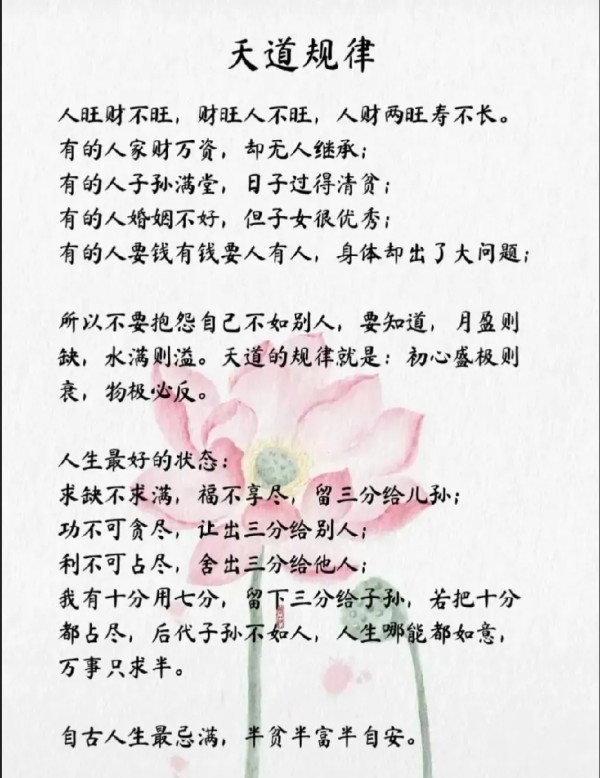 天道规律
人旺财不旺，财旺人不旺，人财两旺寿不长。
有的人家财万资，却无人继承；
有的人子孙满堂，日子过得清贫；
有的人婚姻不好，但子女很优秀；
有的人要钱有钱要人有人，身体却出了大问题；
所以不要抱怨自己不如别人，要知道，月盈则
缺，水满则溢。天道的规律就是：初心盛极则
衰，物极必反。
人生最好的状态：
求缺不求满，福不享尽，留三分给儿孙；
功不可贪尽，让出三分给别人；
利不可占尽，舍出三分给他人；
我有十分用七分，留下三分给子孙，若把十分
都占尽，后代子孙不如人，人生哪能都如意，
万事只求半。
自古人生最忌满，半贫半富半自安。